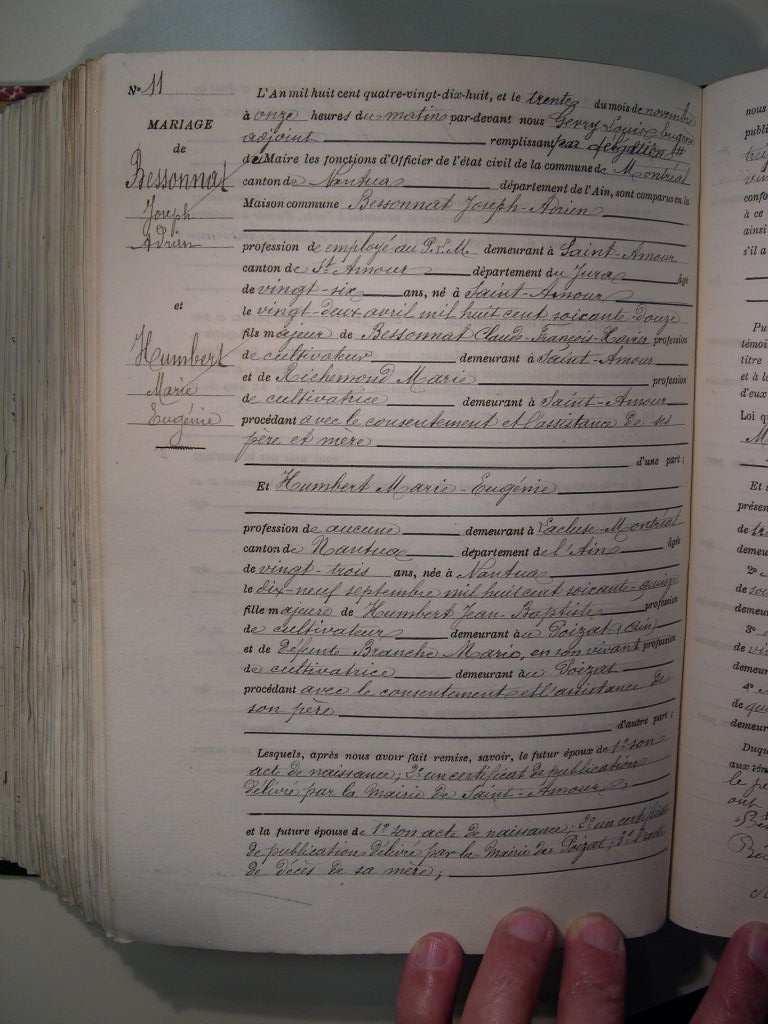 N° 11
MARIAGE
de
Bessonnat
Joseph
Adrien
et
Humbert
Marie
Eugénie
L'An mil huit cent quatre-vingt-dix-huit, et le trente du mois de novembre
à onze heures du matin par-devant nous Gerry Louis Eugène
adjoint remplissant par délégation
du Maire les fonctions d'Officier de l'état civil de la commune de Montréal
canton de Nantua département de l'Ain, sont comparus en la
Maison commune Bessonnat Joseph-Adrien
profession de employé au P.L.M. demeurant à Saint-Amour
canton de St Amour département du Jura âgé
de vingt-six ans, né à Saint-Amour
le vingt-deux avril mil huit cent soixante-douze
fils majeur de Bessonnat Claude-François-Xavier profession
de cultivateur demeurant à Saint-Amour
et de Richemond Marie profession
de cultivatrice demeurant à Saint-Amour
procédant avec le consentement et l'assistance de ses
père et mère
d'une part ;
Et Humbert Marie-Eugénie
profession de aucune demeurant à Lacluse-Montréal
canton de Nantua département de l'Ain âgée
de vingt-trois ans, née à Nantua
le dix-neuf septembre mil huit cent soixante-quinze
fille majeure de Humbert Jean-Baptiste profession
de cultivateur demeurant à Poizat (Ain)
et de défunte Branche Marie, en son vivant profession
de cultivatrice demeurant à Poizat
procédant avec le consentement et l'assistance de
son père
d'autre part ;
Lesquels, après nous avoir fait remise, savoir, le futur époux de 1° son
acte de naissance ; 2° un certificat de publication
délivré par la mairie de Saint-Amour
et la future épouse de 1° son acte de naissance ; 2° un certificat
de publication délivré par la mairie du Poizat ; 3° l'acte
de décès de sa mère ;